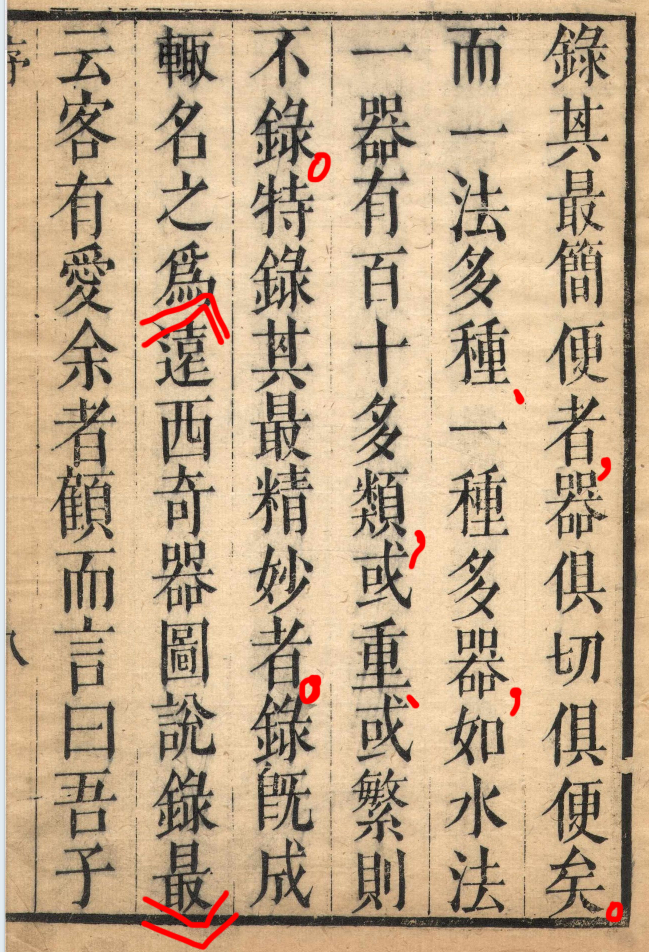 錄其最簡便者，器俱切俱便矣。
而一法多種、一種多器，如水法
一器有百十多類，或重、或繁則
不錄。特錄其最精妙者。錄旣成
輙名之爲《遠西奇器圖說錄最》
云客有愛余者顧而言曰吾子